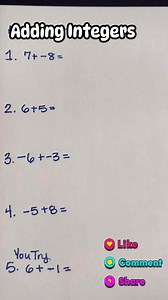 Adding Integers
1. 7+-8=
2. 6+5=
3. -6+-3=
4. -5+8=
You Try
5. 6+-1=
Like
Comment
Share